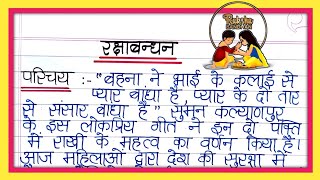 रक्षाबन्धन
परिचय :- "बहना ने भाई के कलाई से
प्यार बाँधा है, प्यार के दो तार
से संसार बाँधा है" सुमन कल्याणपुर
के इस लोकप्रिय गीत ने इन दो पंक्ति
में राखी के महत्व का वर्णन किया है।
आज महिलाओं द्वारा देश की सुरक्षा में